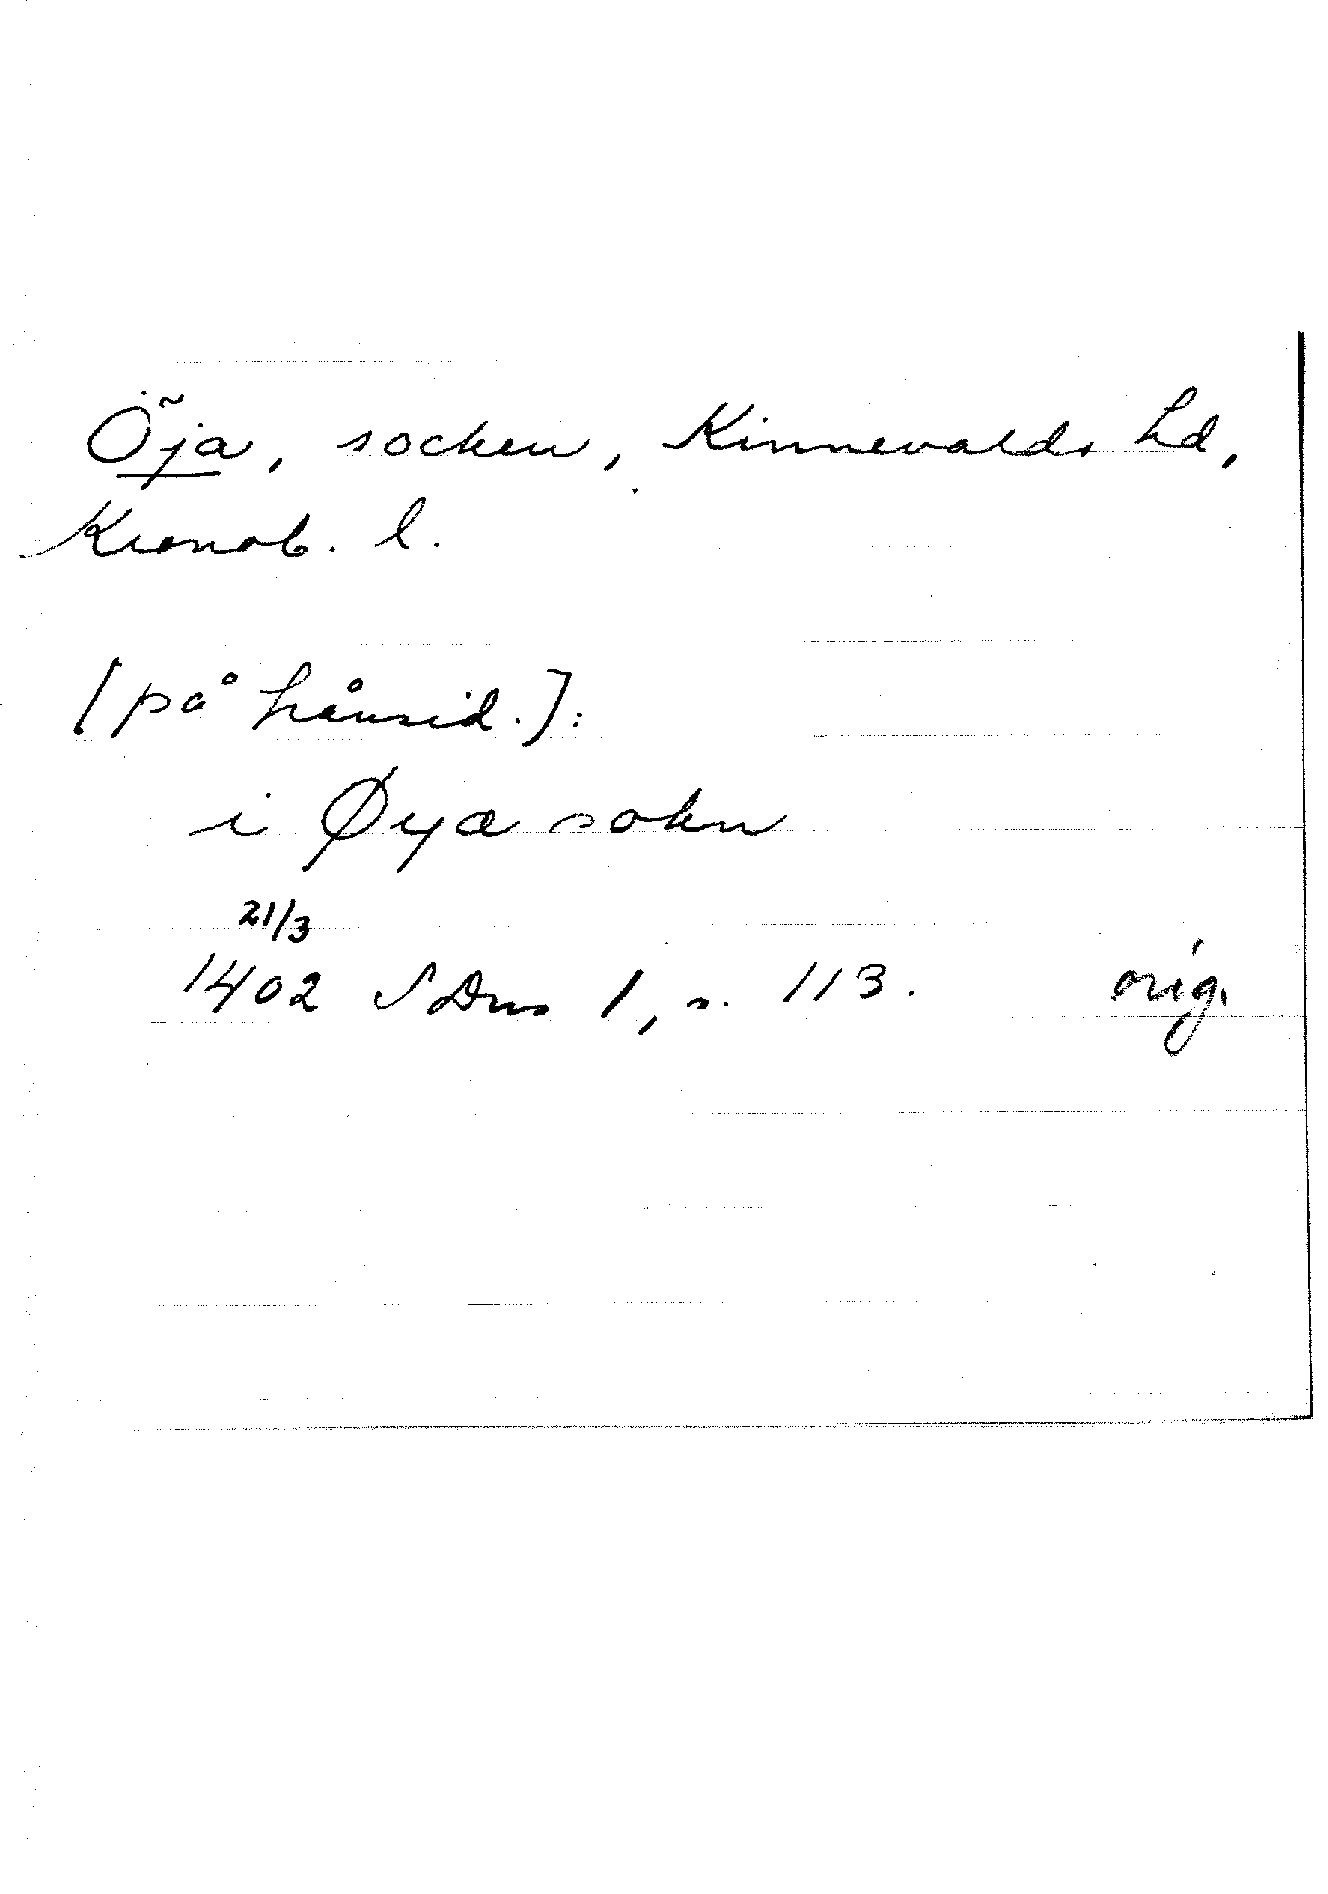 Öja, socken, Kinnevalds hd,
Kronob. l.
[på hånsid.]:
i Øyæ sokn
21/3
1402 SDns 1, s. 113. orig.